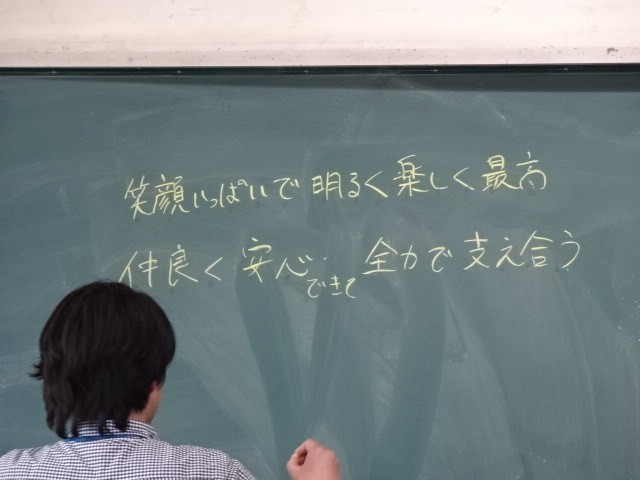 笑顔いっぱいで 明るく 楽しく 最高
仲良く 安心できて 全力で 支え合う